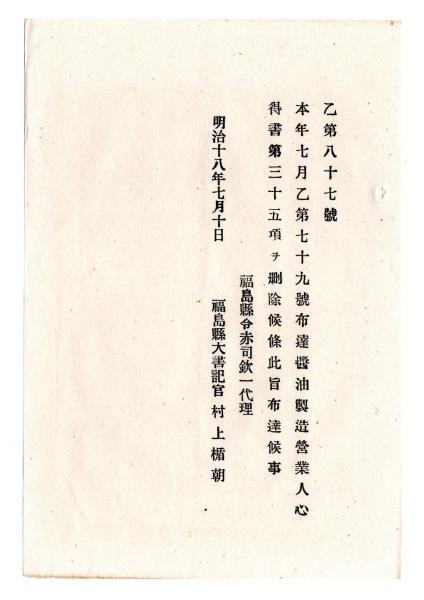 乙第八十七號
本年七月乙第七十九號布達醬油製造營業人心
得書第三十五項ヲ刪除候條此旨布達候事
明治十八年七月十日
福島縣令赤司欽一代理
福島縣大書記官 村上楯朝